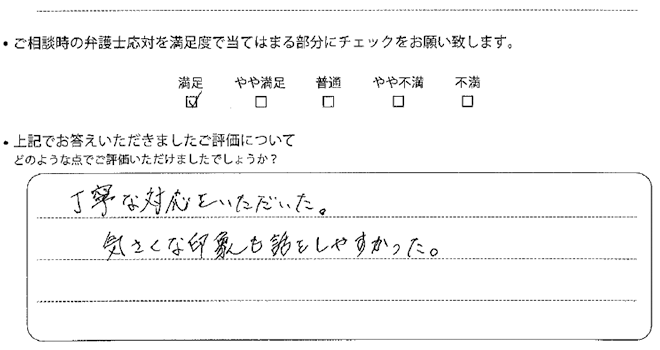 • ご相談時の弁護士応対を満足度で当てはまる部分にチェックをお願い致します。
満足 やや満足 普通 やや不満 不満
☑ ☐ ☐ ☐ ☐
• 上記でお答えいただきましたご評価について
どのような点でご評価いただけましたでしょうか?
丁寧な対応をいただいた。
気さくな印象も話をしやすかった。